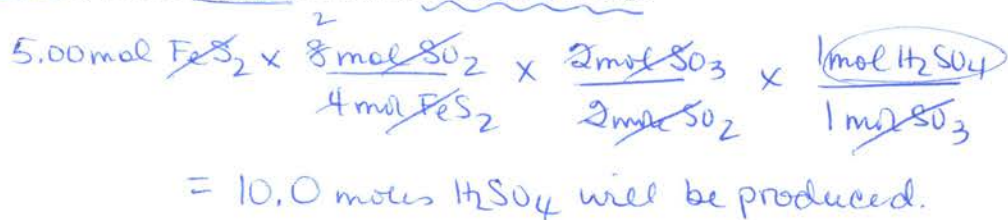 2
5.00 mol FeS₂ x 8 mol SO₂ / 4 mol FeS₂ x 2 mol SO₃ / 2 mol SO₂ x 1 mol H₂SO₄ / 1 mol SO₃
= 10.0 moles H₂SO₄ will be produced.